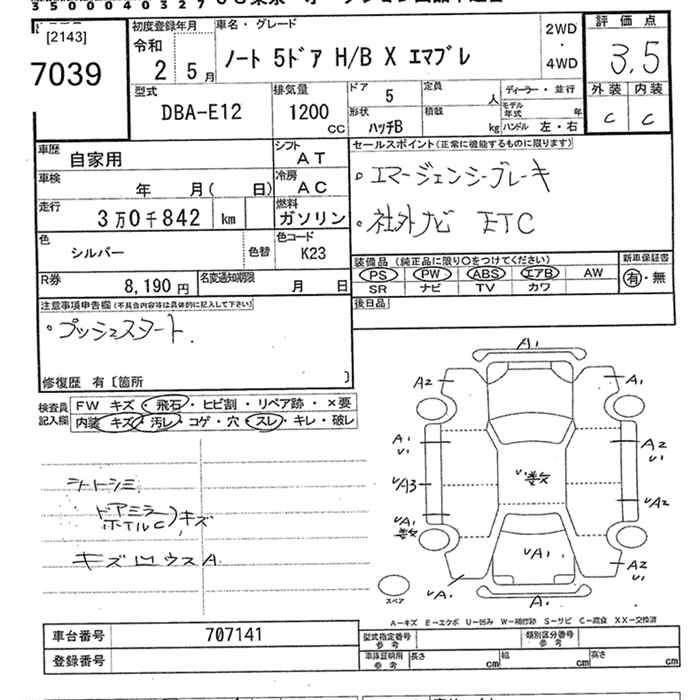 3500040327
[2143]
7039
初度登録年月
令和
2 5月
車名・グレード
ノート 5ドア H/B X エマブレ
2WD
・
4WD
評価点
3.5
外装 内装
C C
型式
DBA-E12
排気量
1200
CC
ドア
5
形状
ハッチB
定員
人
積載
kg
ディーラー・並行
モデル年式 年
ハンドル 左・右
車歴
自家用
シフト
AT
車検
年 月( 日)
冷房
AC
走行
3万0千842 km
燃料
ガソリン
色
シルバー
色替
色コード
K23
R券
8,190円
名変通知期限
月 日
セールスポイント(正常に機能するものに限ります)
。エマージェンシーブレーキ
。社外ナビ ETC
装備品(純正品に限り○をつけてください)
PS PW ABS エアB AW
SR ナビ TV カワ
新車保証書
有・無
後日品
注意事項申告欄(不具合内容等は具体的に記入して下さい)
。プッシュスタート.
修復歴 有〔箇所 〕
検査員
記入欄
FW キズ・飛石・ヒビ割・リペア跡・×要
内装 キズ・汚レ・コゲ・穴・スレ・キレ・破レ
シートシミ
ドアミラー
ホイルC)キズ
キズ凹ウスA.
A1
A2
A1
A1
U1
A2
U1
UA3
U数
UA2
UA1
数
UA1
A2
U1
UA1
A1
スペア
A-キズ E-エクボ U-凹み W-補修跡 S-サビ C-腐食 XX-交換済
車台番号
707141
登録番号
型式指定番号
参考
類別区分番号
参考
車庫証明用
参考
長さ cm 幅 cm 高さ cm